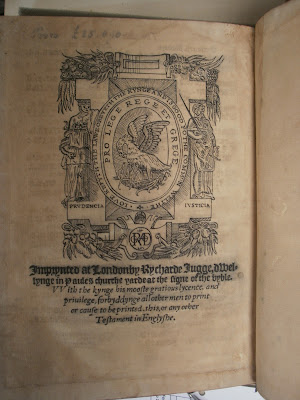 PRO LEGE REGE ET GREGE
PRUDENCIA
IUSTICIA
Imprynted at London by Rycharde Jugge, dwel-
lynge in Paules churche yarde at the signe of the byble.
VVith the kynge his mooste gratious lycence, and
privilege, forbyddynge all other men to print
or cause to be printed, this, or any other
Testament in Englyshe.